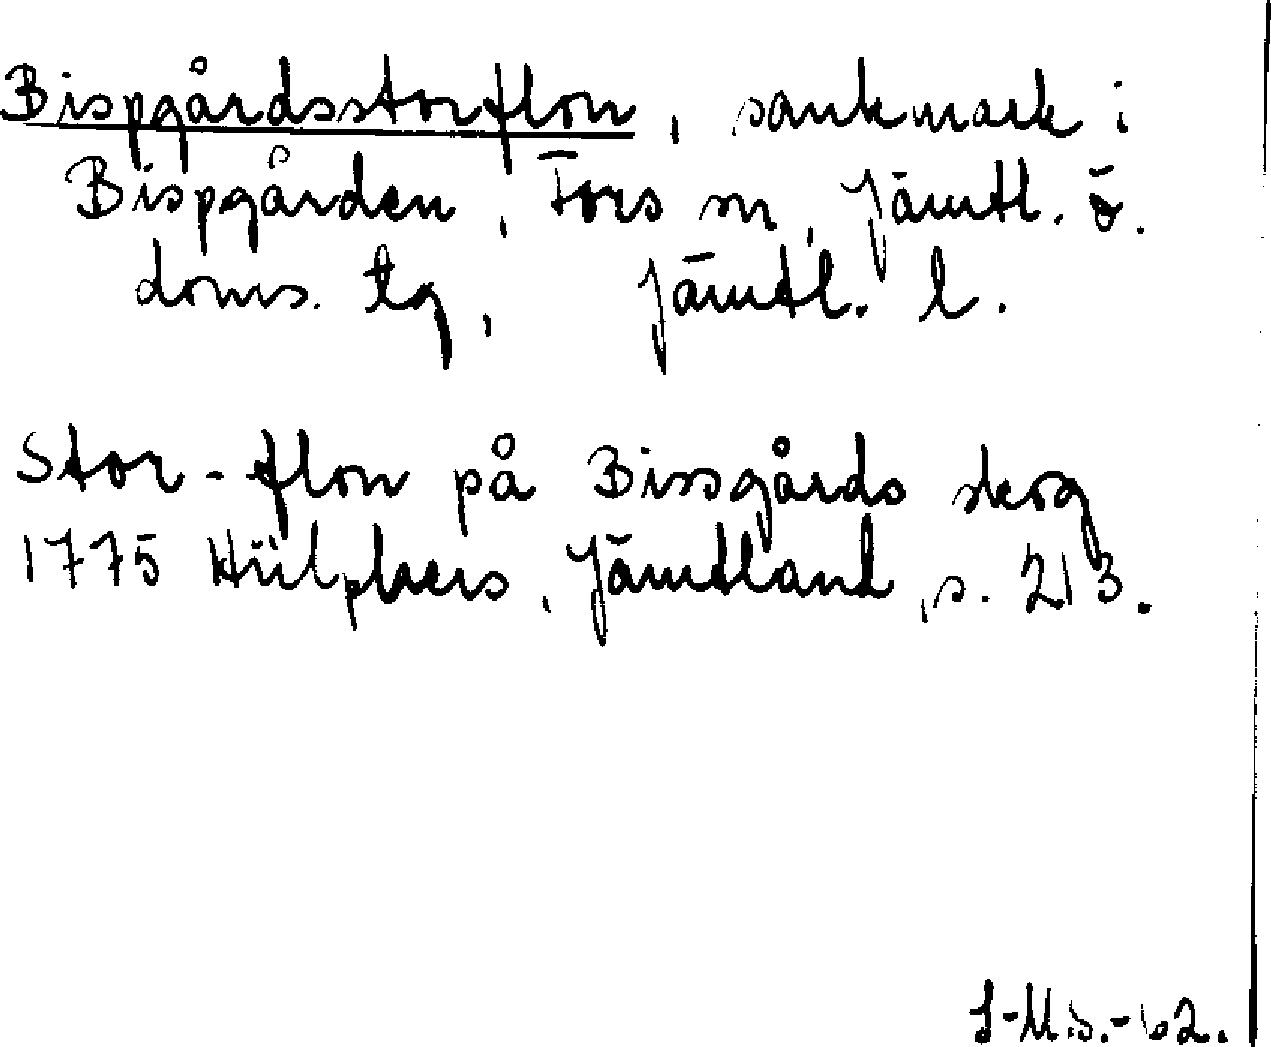 Bispgårdsstorflon, sankmark i
Bispgården, Fors sn, Jämtl. ö.
doms. tg, Jämtl. l.
Stor-flon på Bissgårds skog
1775 Hülphers, Jämtland, s. 213.
I-M.S.-62.